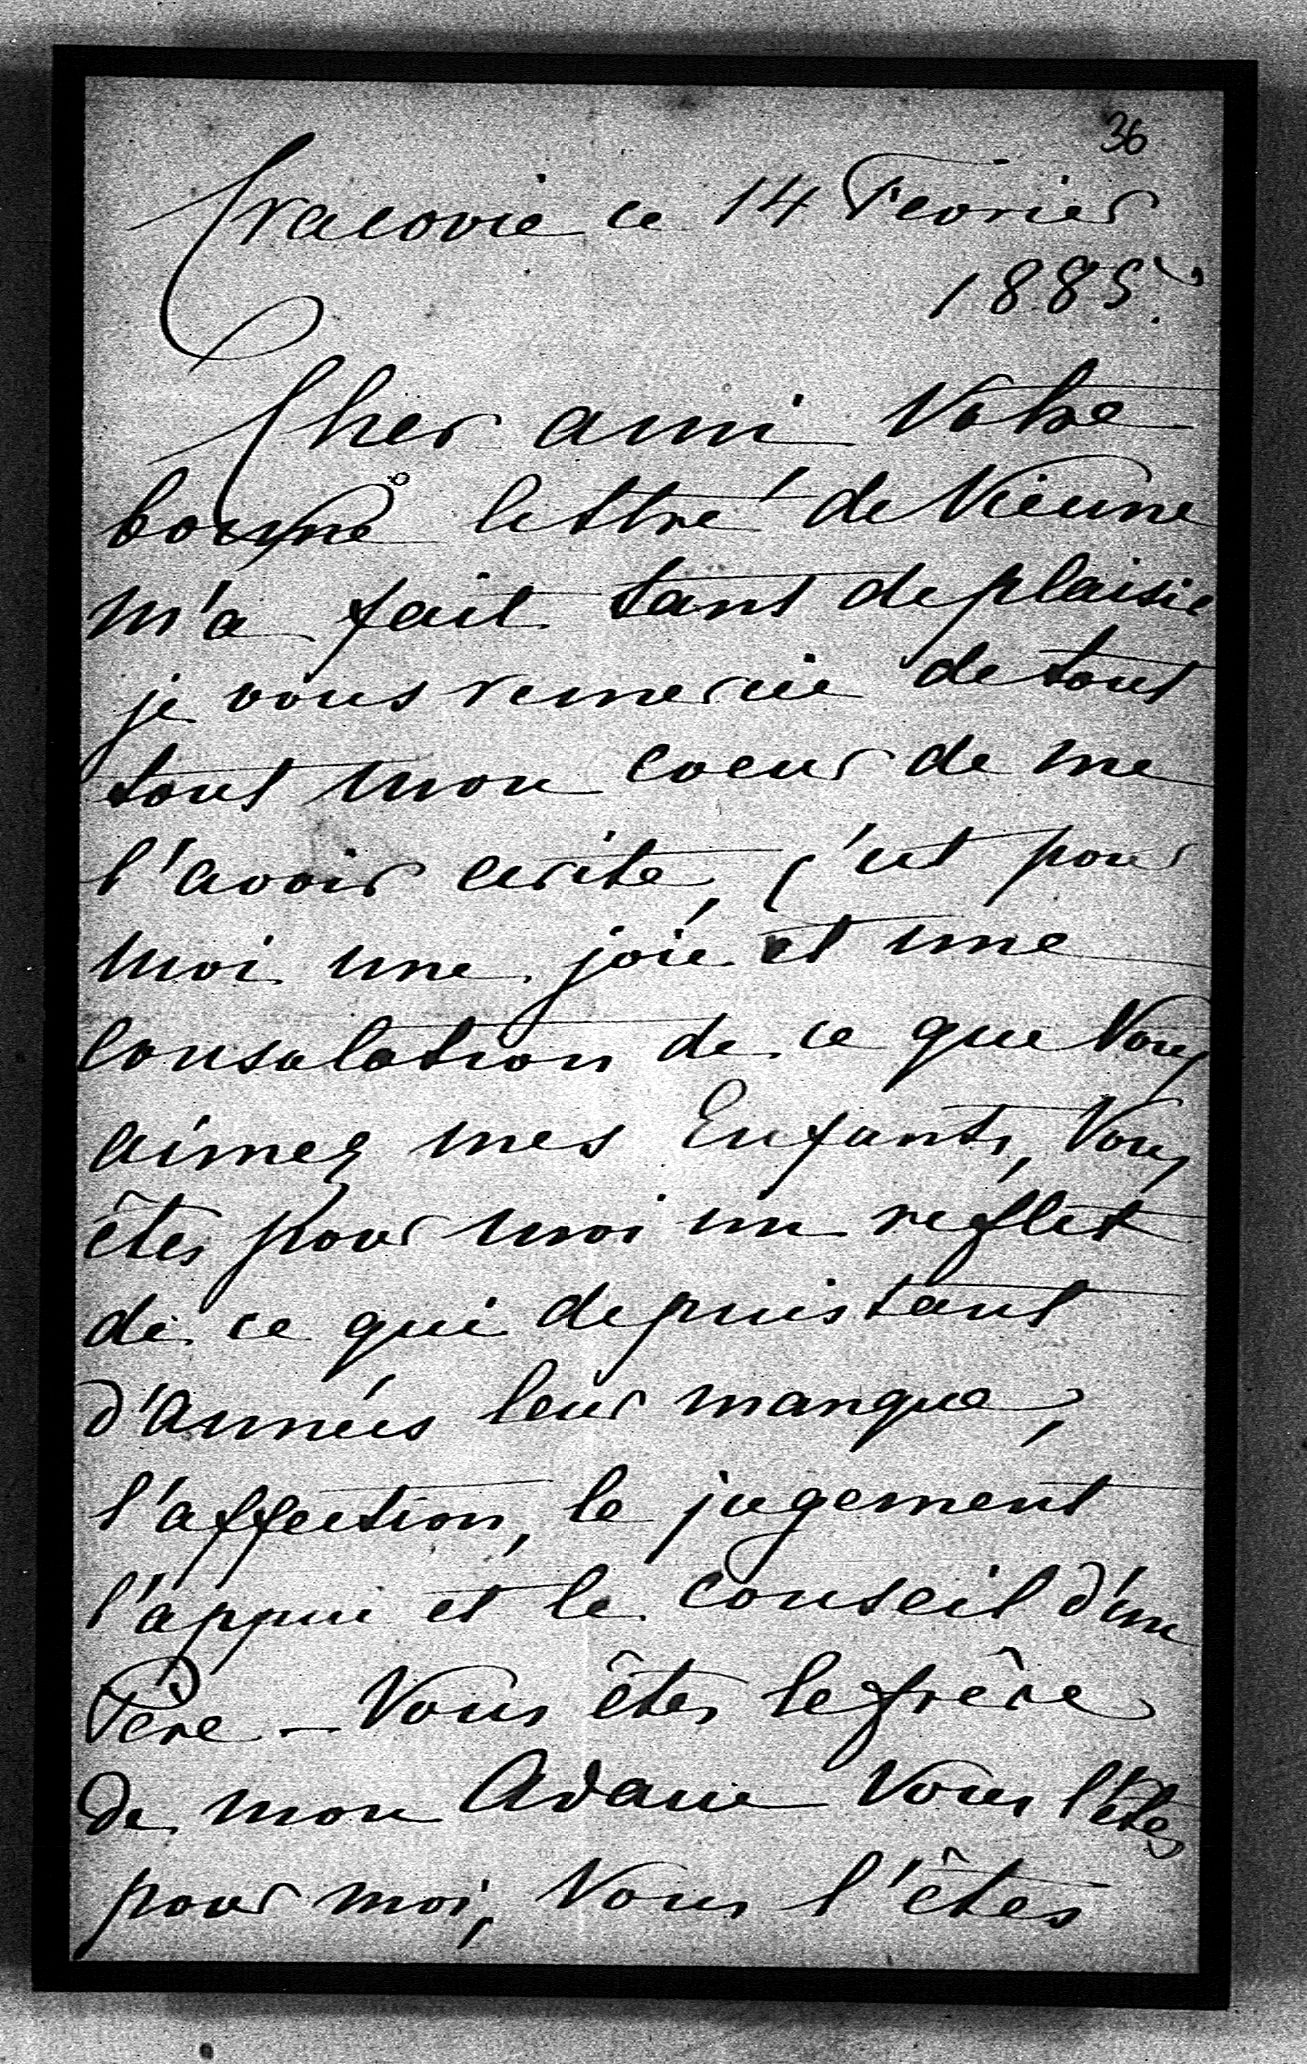 36
Cracovie ce 14 Fevrier
1885.
Cher ami Votre
bonne lettre de Vienne
m'a fait tant de plaisir
je vous remercie de tout
tout mon coeur de me
l'avoir ecrite, c'est pour
moi une joie et une
consolation de ce que Vous
aimez mes Enfants, Vous
êtes pour moi un reflet
de ce qui depuis tant
d'années leur manque,
l'affection, le jugement
l'appui et le conseil d'un
Père – Vous êtes le frère
de mon Adam Vous l'êtes
pour moi, Vous l'êtes